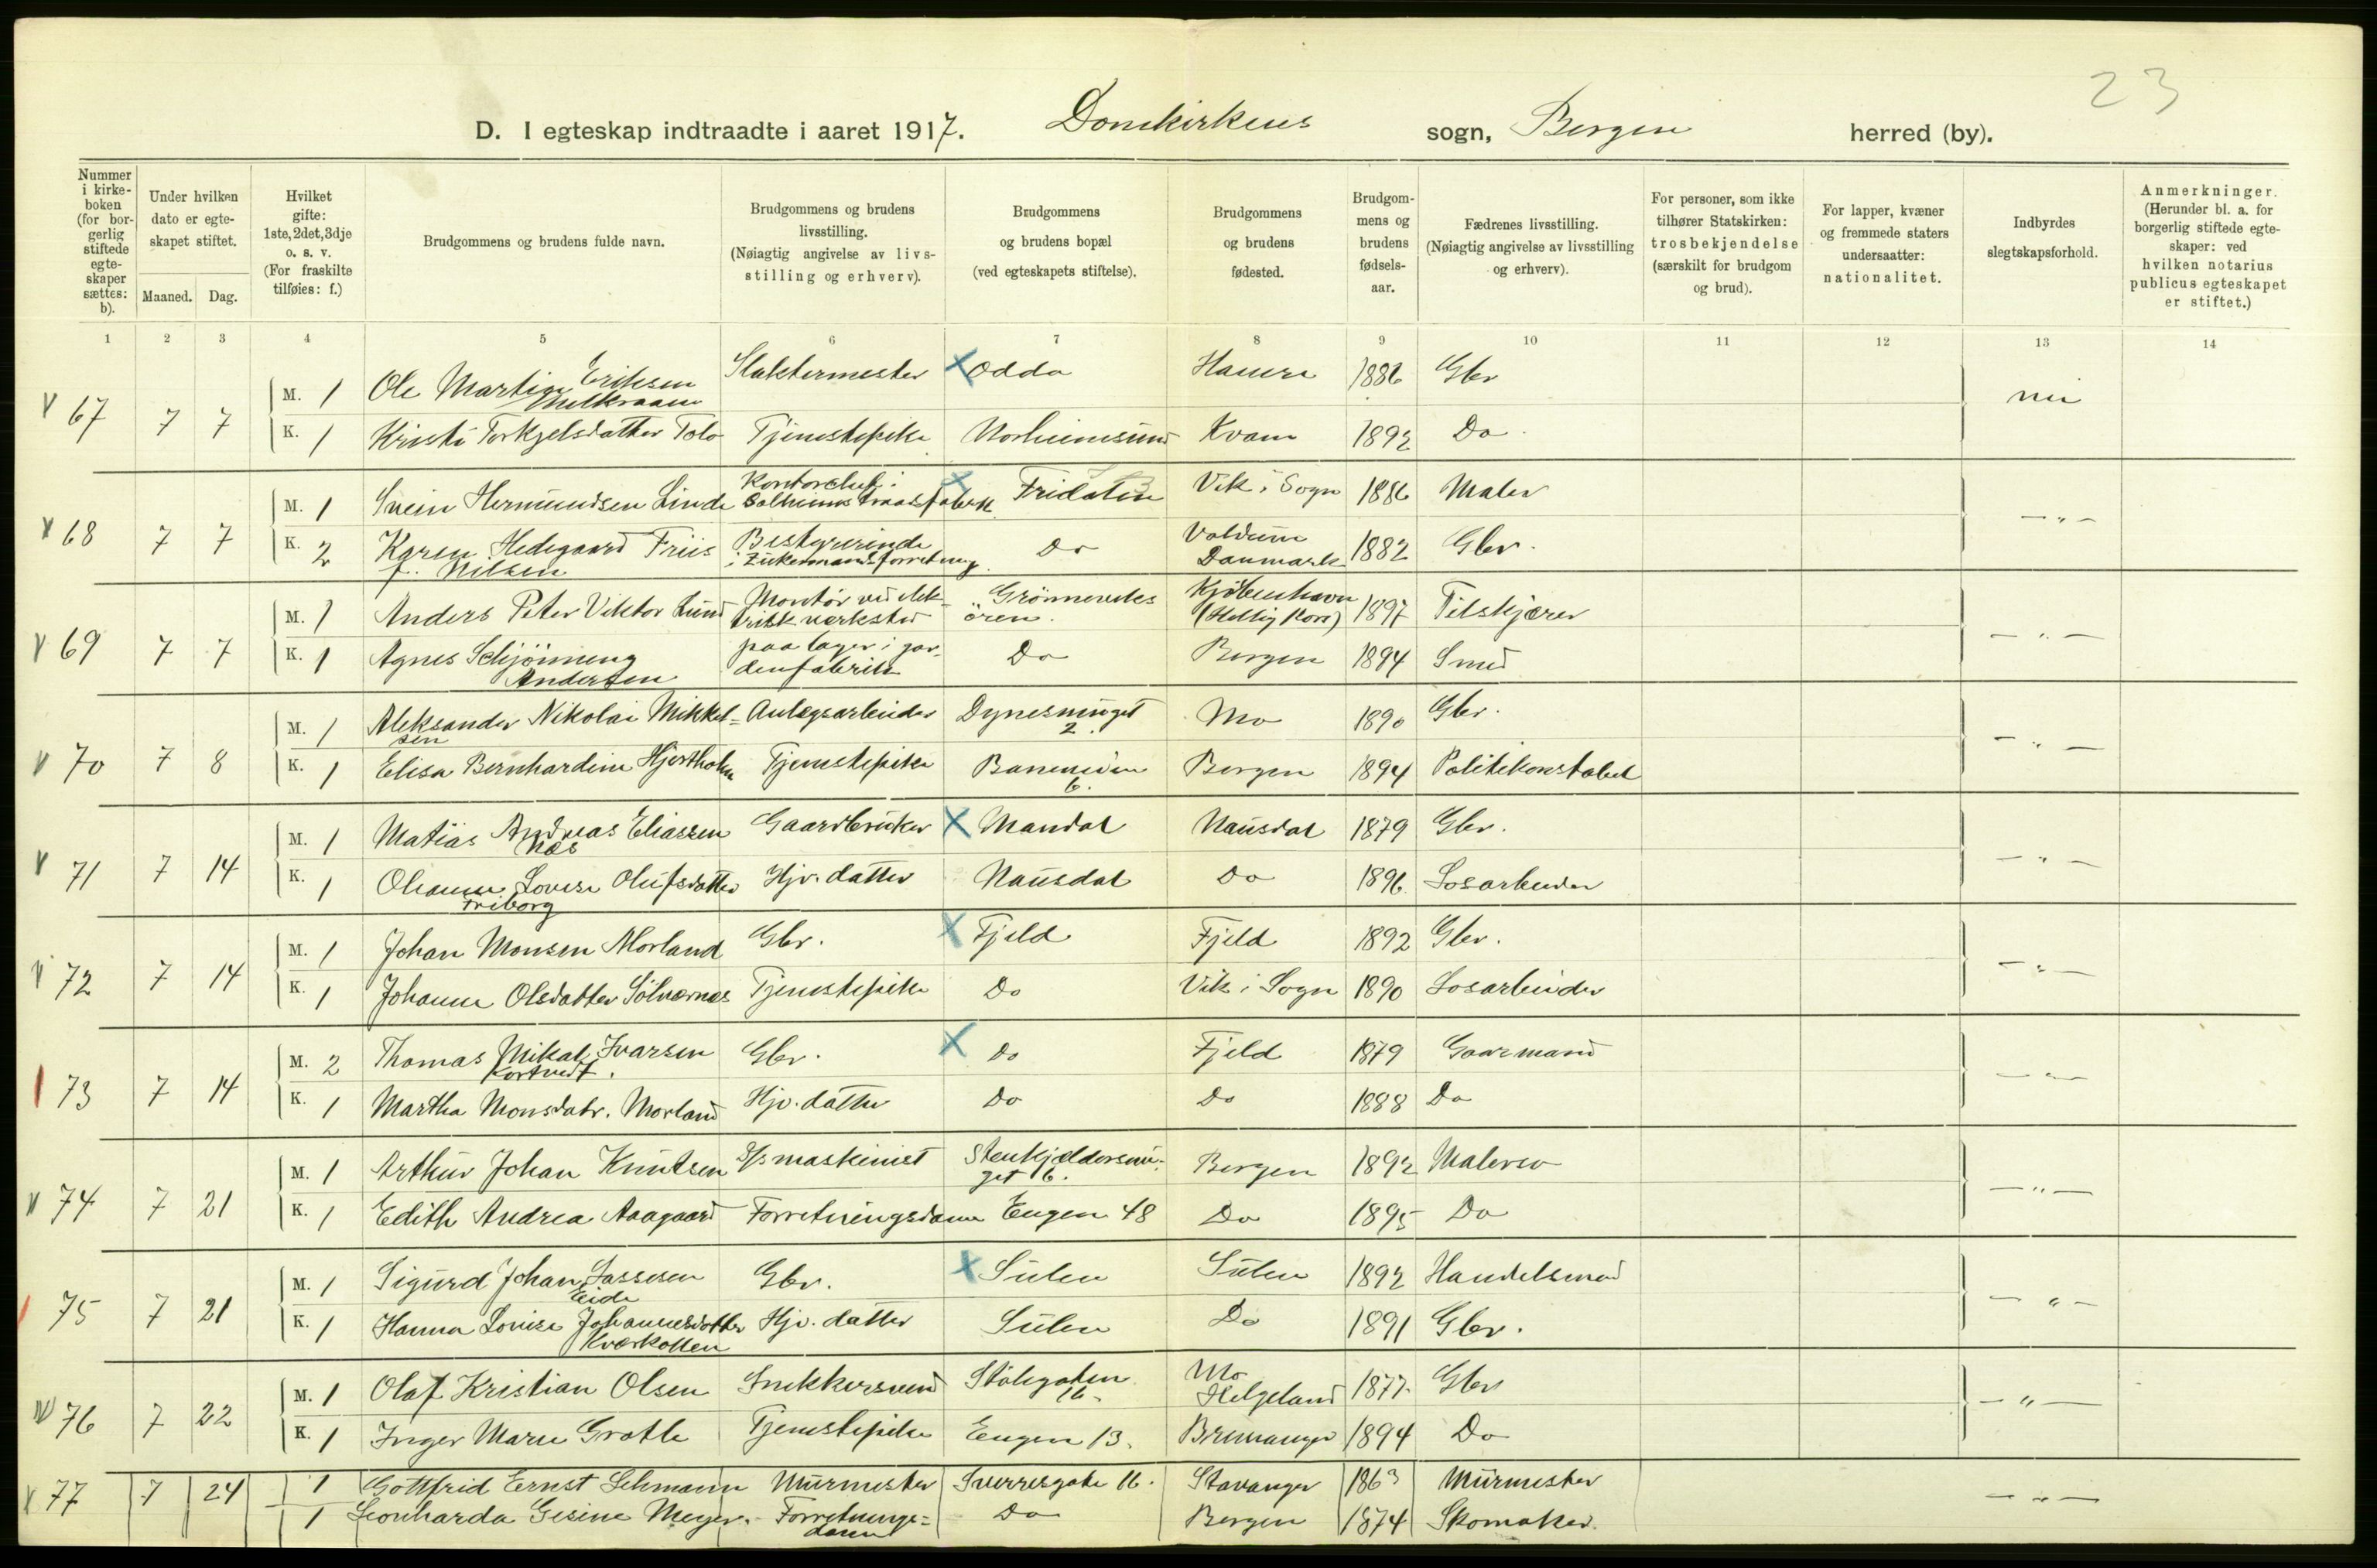 23
D. I egteskap indtraadte i aaret 1917. Domkirkens sogn, Bergen herred (by).
Nummer i kirke-boken (for bor-gerlig stiftede egte-skaper sættes: b).
Under hvilken dato er egte-skapet stiftet.
Maaned. Dag.
Hvilket gifte: 1ste, 2det, 3dje o. s. v. (For fraskilte tilføies: f.)
Brudgommens og brudens fulde navn.
Brudgommens og brudens livsstilling. (Nøiagtig angivelse av livs-stilling og erhverv).
Brudgommens og brudens bopæl (ved egteskapets stiftelse).
Brudgommens og brudens fødested.
Brudgom-mens og brudens fødsels-aar.
Fædrenes livsstilling. (Nøiagtig angivelse av livsstilling og erhverv).
For personer, som ikke tilhører Statskirken: trosbekjendelse (særskilt for brudgom og brud).
For lapper, kvæner og fremmede staters undersaatter: nationalitet.
Indbyrdes slegtskapsforhold.
Anmerkninger. (Herunder bl. a. for borgerlig stiftede egte-skaper: ved hvilken notarius publicus egteskapet er stiftet.)
1 2 3 4 5 6 7 8 9 10 11 12 13 14
67 7 7 M. 1 Ole Martin Eriksen Slaktermester Odda 1886 Gbr
K. 1 Kristi Torkjelsdatter Tolo Tjenestepike Norheimsund Kvam 1892 Do
68 7 7 M. 1 Svein Hermundsen Linde Fridalen Vik i Sogn 1886 Maler — " —
K. 2 Karen Hedegaard Friis f. Nilsen Bestyrerinde i Zukermans forretning Do Voldum Danmark 1882 Gbr.
69 7 7 M. 1 Anders Peter Viktor Lund Montör ved elek-trisk verksted Grönneviks ören. Kjöbenhavn (Hellig Kors) 1897 Tilskjærer — " —
K. 1 Agnes Schjönneng Andersen paa lager i gar-denfabrik Do Bergen 1894 Smed
70 7 8 M. 1 Aleksander Nikolai Mikkel-sen Anlægsarbeider Dynesmuget 2. Mo 1890 Gbr. — " —
K. 1 Elisa Bernhardine Hjertholm Tjenestepike Baneveien 6. Bergen 1894 Politikonstabel
71 7 14 M. 1 Matias Andreas Eliassen Næs Gaardbruker Mandal Nausdal 1879 Gbr. — " —
K. 1 Louise Olufsdatter Friborg Hjv. datter Nausdal Do 1896 Losarbeider
72 7 14 M. 1 Johan Monsen Morland Gbr. Fjeld Fjeld 1892 Gbr. — " —
K. 1 Johanne Olsdatter Sölvernes Tjenestepike Do Vik i Sogn 1890 Losarbeider
73 7 14 M. 2 Thomas Mikal Ivarsen Kortvedt. Gbr. Do Fjeld 1879 Gaarmand — " —
K. 1 Martha Monsdatr. Morland Hjv. datter Do Do 1888 Do
74 7 21 M. 1 Arthur Johan Knutsen S/s maskinist Stenkjeldersmu-get 6. Bergen 1892 Malersv — " —
K. 1 Edith Andrea Aagaard Forretningsdame Engen 48 Do 1895 Do
75 7 21 M. 1 Sigurd Johan Lassesen Eide Gbr. Sulen Sulen 1892 Handelsmand — " —
K. 1 Hanna Louise Johannesdatter Kværkollen Hjv. datter Sulen Do 1891 Gbr.
76 7 22 M. 1 Olaf Kristian Olsen Snekkersvend Stölegaten 16. Mo Helgeland 1877 Gbr — " —
K. 1 Inger Marie Grotle Tjenestepike Engen 13. Bremanger 1894 Do
77 7 24 1 Gottfrid Ernst Lehmann Murmester Sverresgate 16. Stavanger 1863 Murmester — " —
1 Leonharda Gesine Meyer. Forretnings=dame Do Bergen 1874 Skomaker.